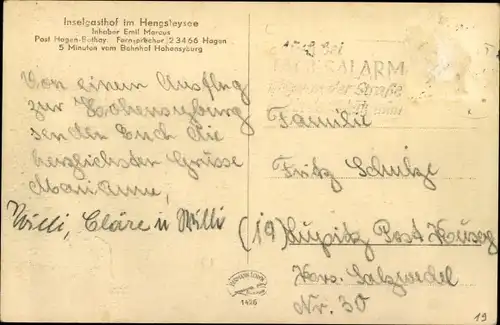 Inselgasthof im Hengsteysee
Inhaber Emil Marcus
Post Hagen-Bathey. Fernsprecher 23466 Hagen
5 Minuten vom Bahnhof Hohensyburg
Von einem Ausflug
zur Hohensyburg
senden Euch die
herzlichsten Grüsse
Marianne,
Willi, Cläre u Willi
bei
ALARM
der Straße
Familie
Fritz Schulze
(19) Post
Krs. Salzwedel
Nr. 30
1426
19